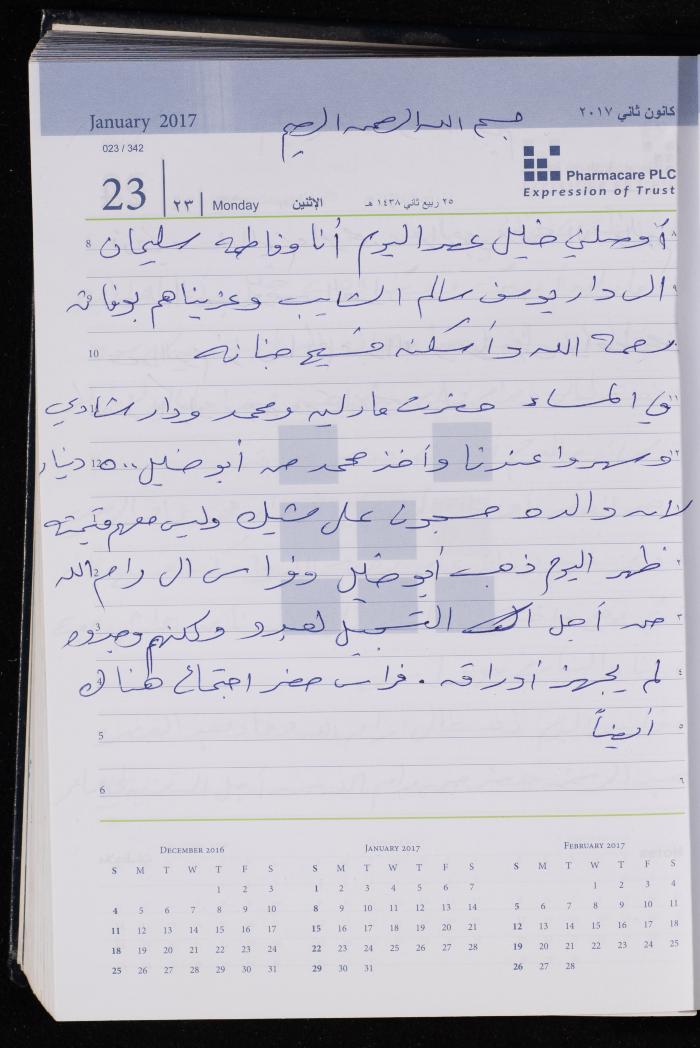 January 2017
بسم الله الرحمن الرحيم
كانون ثاني ٢٠١٧
023 / 342
23 ٢٣ Monday الإثنين ٢٥ ربيع ثاني ١٤٣٨ هـ
Pharmacare PLC
Expression of Trust
8 أوصلني خليل عصر اليوم أنا وفاطمه سليمان ٨
ال دار يوسف سالم الشايب وعزيناهم بوفاته
10 رحمة الله وأسكنه فسيح جنانه
في المساء حضرت مادلين ومحمد ودار شادي
12 وسهروا عندنا وأخذ محمد من أبو خليل ٥٠٠ دينار ١٢
لانه والده مسجون على شيك وليس معهم قيمته
2 ظهر اليوم ذهب أبو خليل وفراس ال رام الله ٢
3 من أجل التسجيل لعبد ولكنهم وجدوه ٣
4 لم يجهز أوراقه . فراس حضر اجتماع هناك ٤
5 أيضاً ٥
6 ٦
DECEMBER 2016
S M T W T F S
1 2 3
4 5 6 7 8 9 10
11 12 13 14 15 16 17
18 19 20 21 22 23 24
25 26 27 28 29 30 31
JANUARY 2017
S M T W T F S
1 2 3 4 5 6 7
8 9 10 11 12 13 14
15 16 17 18 19 20 21
22 23 24 25 26 27 28
29 30 31
FEBRUARY 2017
S M T W T F S
1 2 3 4
5 6 7 8 9 10 11
12 13 14 15 16 17 18
19 20 21 22 23 24 25
26 27 28